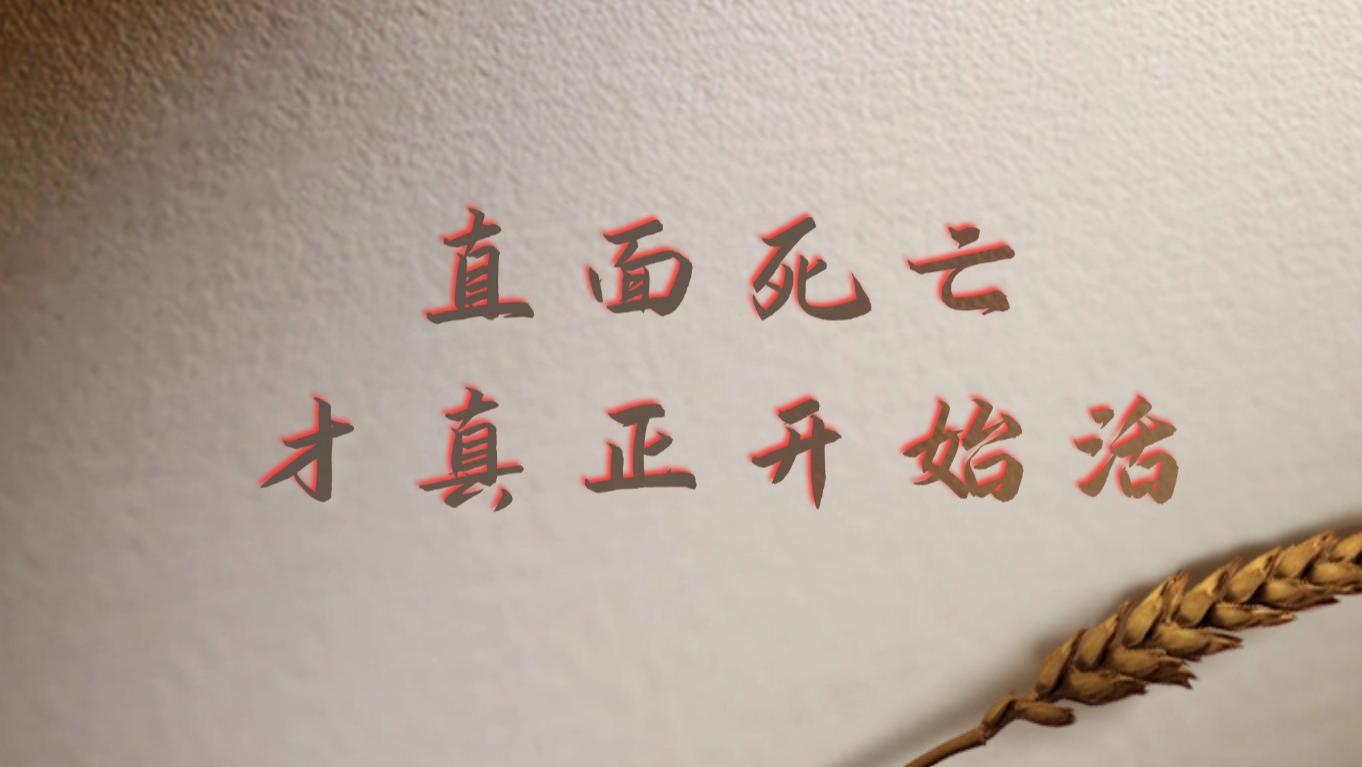 直面死亡
才真正开始活